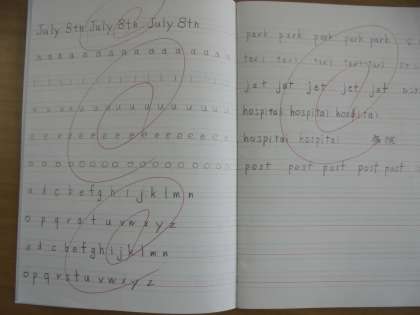 July 8th July 8th July 8th
a a a a a a a a a a a a a
i i i i i i i i i i i i i
u u u u u u u u u u u u u
e e e e e e e e e e e e e
o o o o o o o o o o o o o
a d c b e f g h i j k l m n
o p q r s t u v w x y z
a d c b e f g h i j k l m n
o p q r s t u v w x y z
park park park park park
taxi taxi taxi taxi taxi
jet jet jet jet jet
hospital hospital hospital
hospital hospital
post post post post post